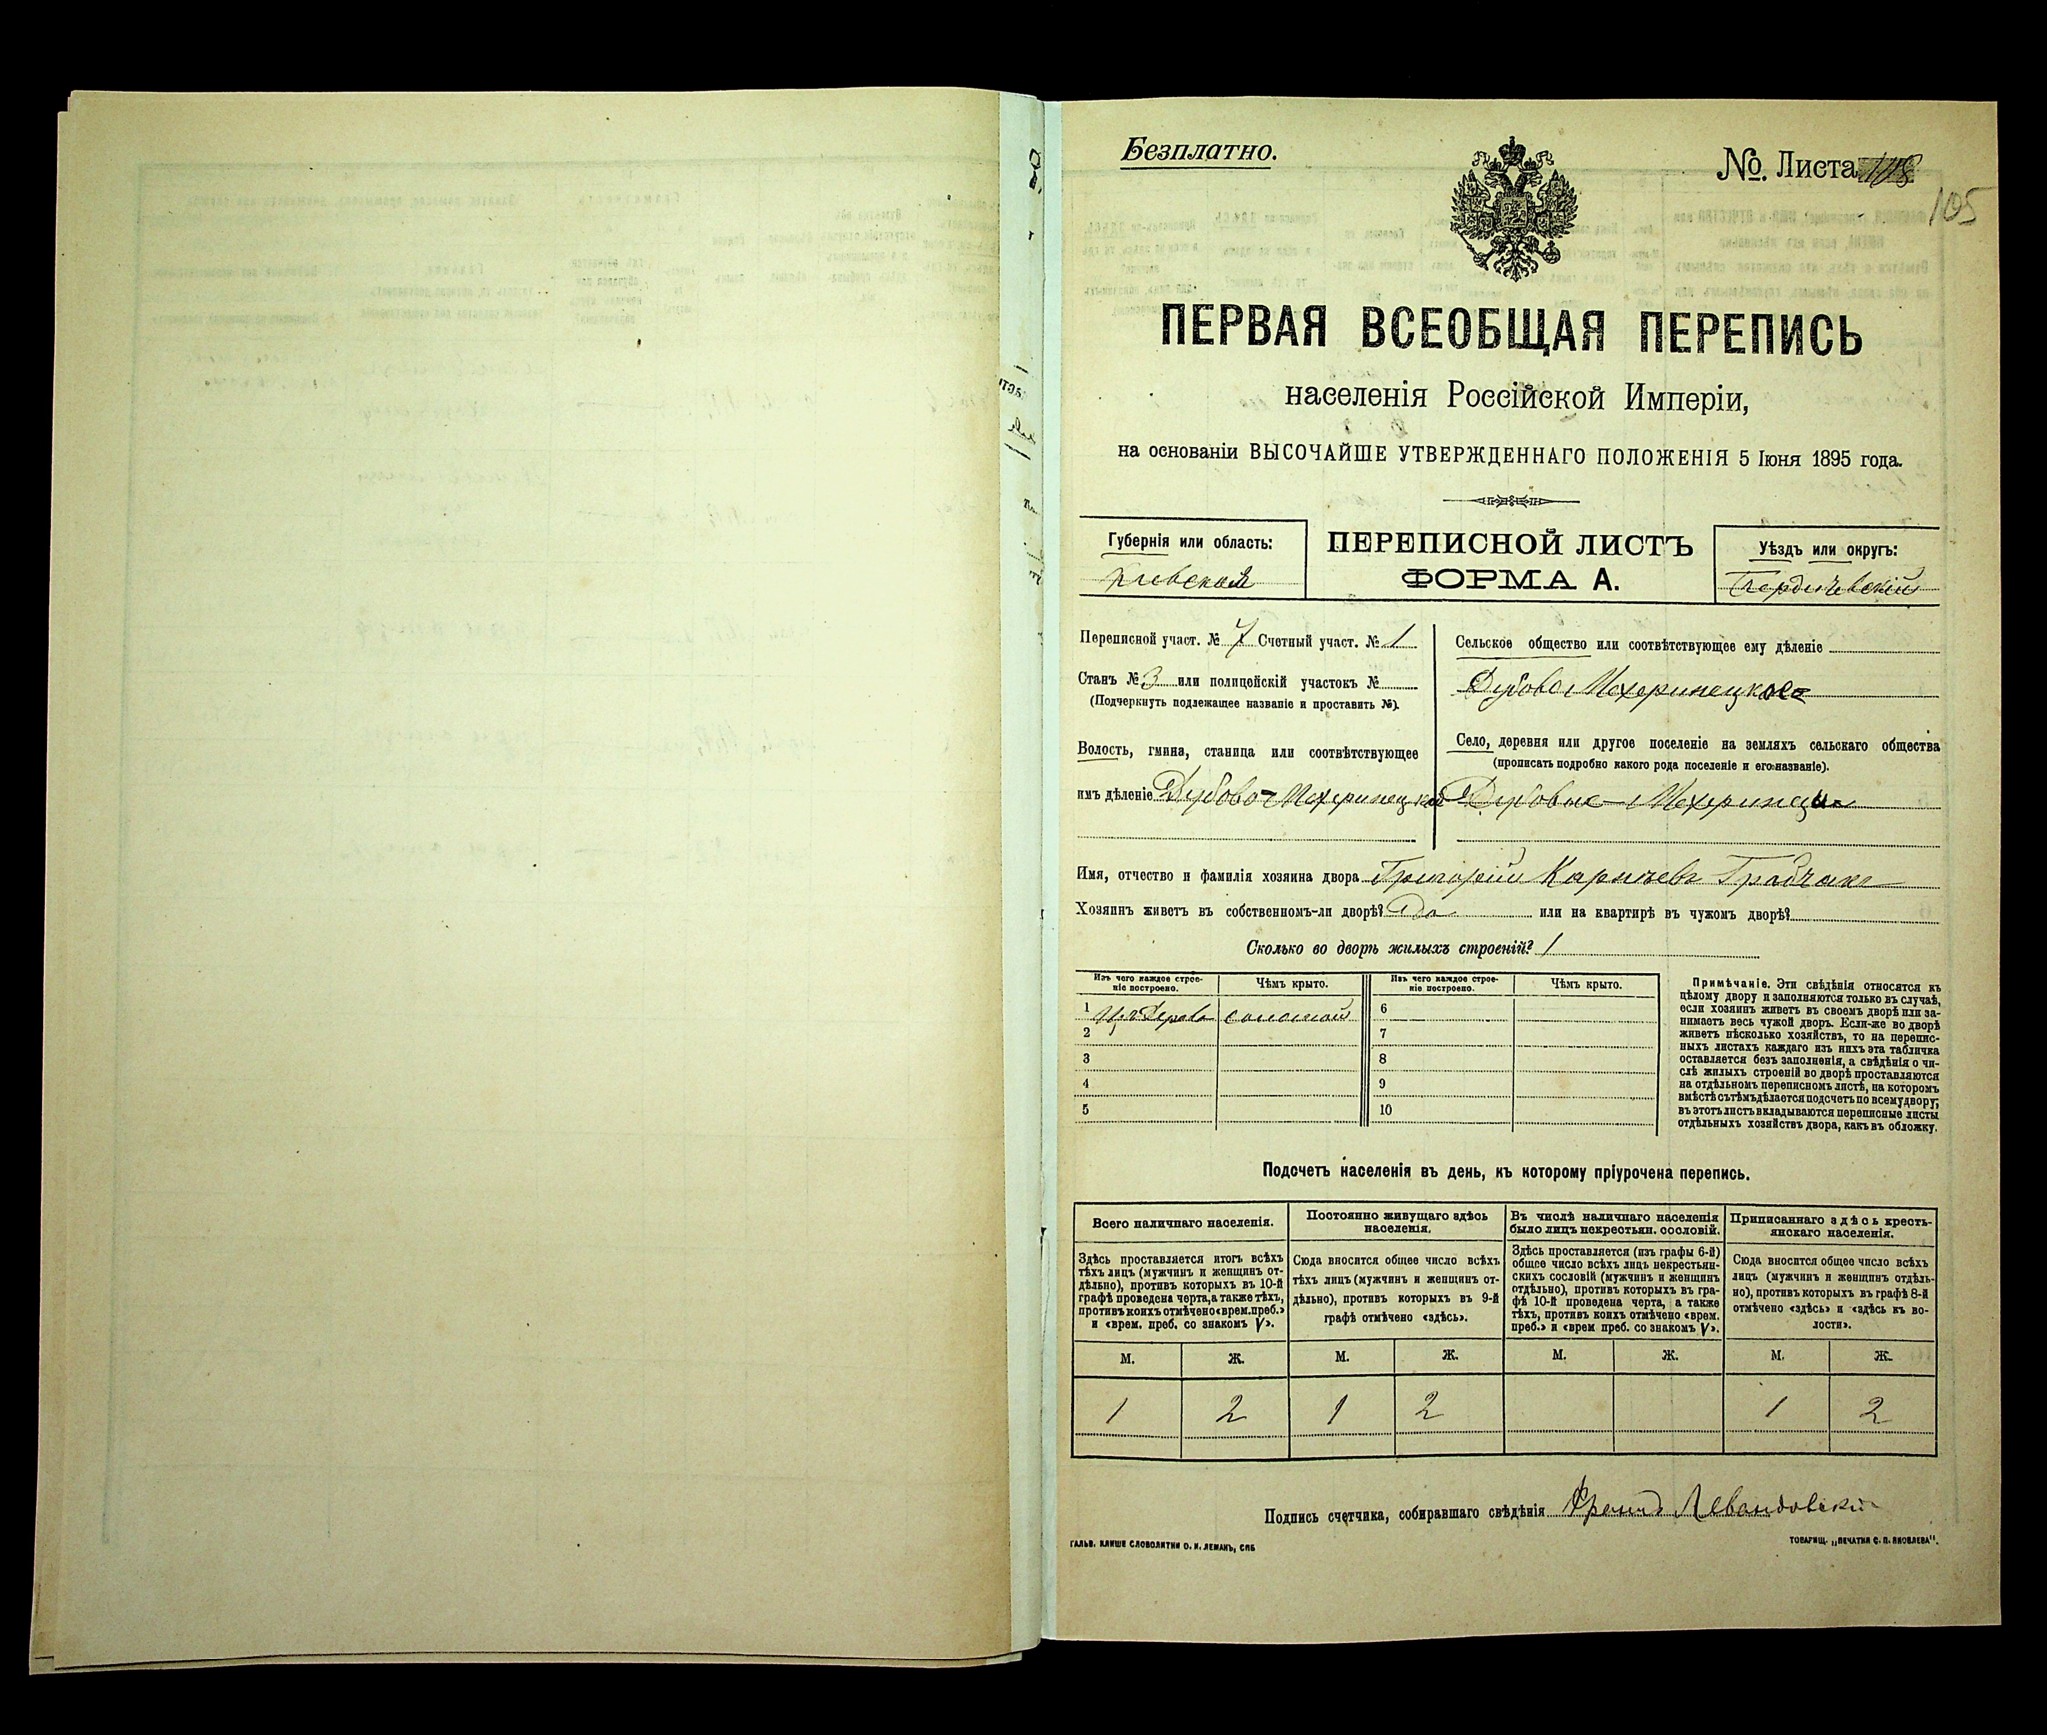 Безплатно.
№. Листа 108
105
ПЕРВАЯ ВСЕОБЩАЯ ПЕРЕПИСЬ
населенія Россійской Имперіи,
на основаніи ВЫСОЧАЙШЕ УТВЕРЖДЕННАГО ПОЛОЖЕНІЯ 5 Іюня 1895 года.
Губернія или область:
Кіевская
ПЕРЕПИСНОЙ ЛИСТЪ
ФОРМА А.
Уѣздъ или округъ:
Бердичевскій
Переписной участ. № 7 Счетный участ. № 1
Станъ № 3 или полицейскій участокъ №
(Подчеркнуть подлежащее названіе и проставить №).
Волость, гмина, станица или соотвѣтствующее
имъ дѣленіе Дубово-Махаринецкая
Сельское общество или соотвѣтствующее ему дѣленіе
Дубово Махаринецкое
Село, деревня или другое поселеніе на земляхъ сельскаго общества
(прописать подробно какого рода поселеніе и его названіе).
Дубовые-Махаринцы
Имя, отчество и фамилія хозяина двора Григорій
Хозяинъ живетъ въ собственномъ-ли дворѣ? Да или на квартирѣ въ чужомъ дворѣ?
Сколько во дворѣ жилыхъ строеній? 1
Изъ чего каждое строе-
ніе построено.
Чѣмъ крыто.
Изъ чего каждое строе-
ніе построено.
Чѣмъ крыто.
1 Изъ дерева соломой 6
2 7
3 8
4 9
5 10
Примѣчаніе. Эти свѣдѣнія относятся къ
цѣлому двору и заполняются только въ случаѣ,
если хозяинъ живетъ въ своемъ дворѣ или за-
нимаетъ весь чужой дворъ. Если-же во дворѣ
живетъ нѣсколько хозяйствъ, то на перепис-
ныхъ листахъ каждаго изъ нихъ эта табличка
оставляется безъ заполненія, а свѣдѣнія о чи-
слѣ жилыхъ строеній во дворѣ проставляются
на отдѣльномъ переписномъ листѣ, на которомъ
вмѣстѣ съ тѣмъ дѣлается подсчетъ по всему двору;
въ этотъ листъ вкладываются переписные листы
отдѣльныхъ хозяйствъ двора, какъ въ обложку.
Подсчетъ населенія въ день, къ которому пріурочена перепись.
Всего наличнаго населенія.
Здѣсь проставляется итогъ всѣхъ
тѣхъ лицъ (мужчинъ и женщинъ от-
дѣльно), противъ которыхъ въ 10-й
графѣ проведена черта, а также тѣхъ,
противъ коихъ отмѣчено «врем. преб.»
и «врем. преб. со знакомъ V».
Постоянно живущаго здѣсь
населенія.
Сюда вносится общее число всѣхъ
тѣхъ лицъ (мужчинъ и женщинъ от-
дѣльно), противъ которыхъ въ 9-й
графѣ отмѣчено «здѣсь».
Въ числѣ наличнаго населенія
было лицъ некрестьян. сословій.
Здѣсь проставляется (изъ графы 6-й)
общее число всѣхъ лицъ некрестьян-
скихъ сословій (мужчинъ и женщинъ
отдѣльно), противъ которыхъ въ гра-
фѣ 10-й проведена черта, а также
тѣхъ, противъ коихъ отмѣчено «врем.
преб.» и «врем преб. со знакомъ V».
Приписаннаго здѣсь кресть-
янскаго населенія.
Сюда вносится общее число всѣхъ
лицъ (мужчинъ и женщинъ отдѣль-
но), противъ которыхъ въ графѣ 8-й
отмѣчено «здѣсь» и «здѣсь къ во-
лости».
М. Ж. М. Ж. М. Ж. М. Ж.
1 2 1 2 1 2
Подпись счетчика, собиравшаго свѣдѣнія Францъ Левандовскій
ГАЛЬВ. КЛИШЕ СЛОВОЛИТНИ О. И. ЛЕМАНЪ, СПБ
ТОВАРИЩ. „ПЕЧАТНЯ С. П. ЯКОВЛЕВА".